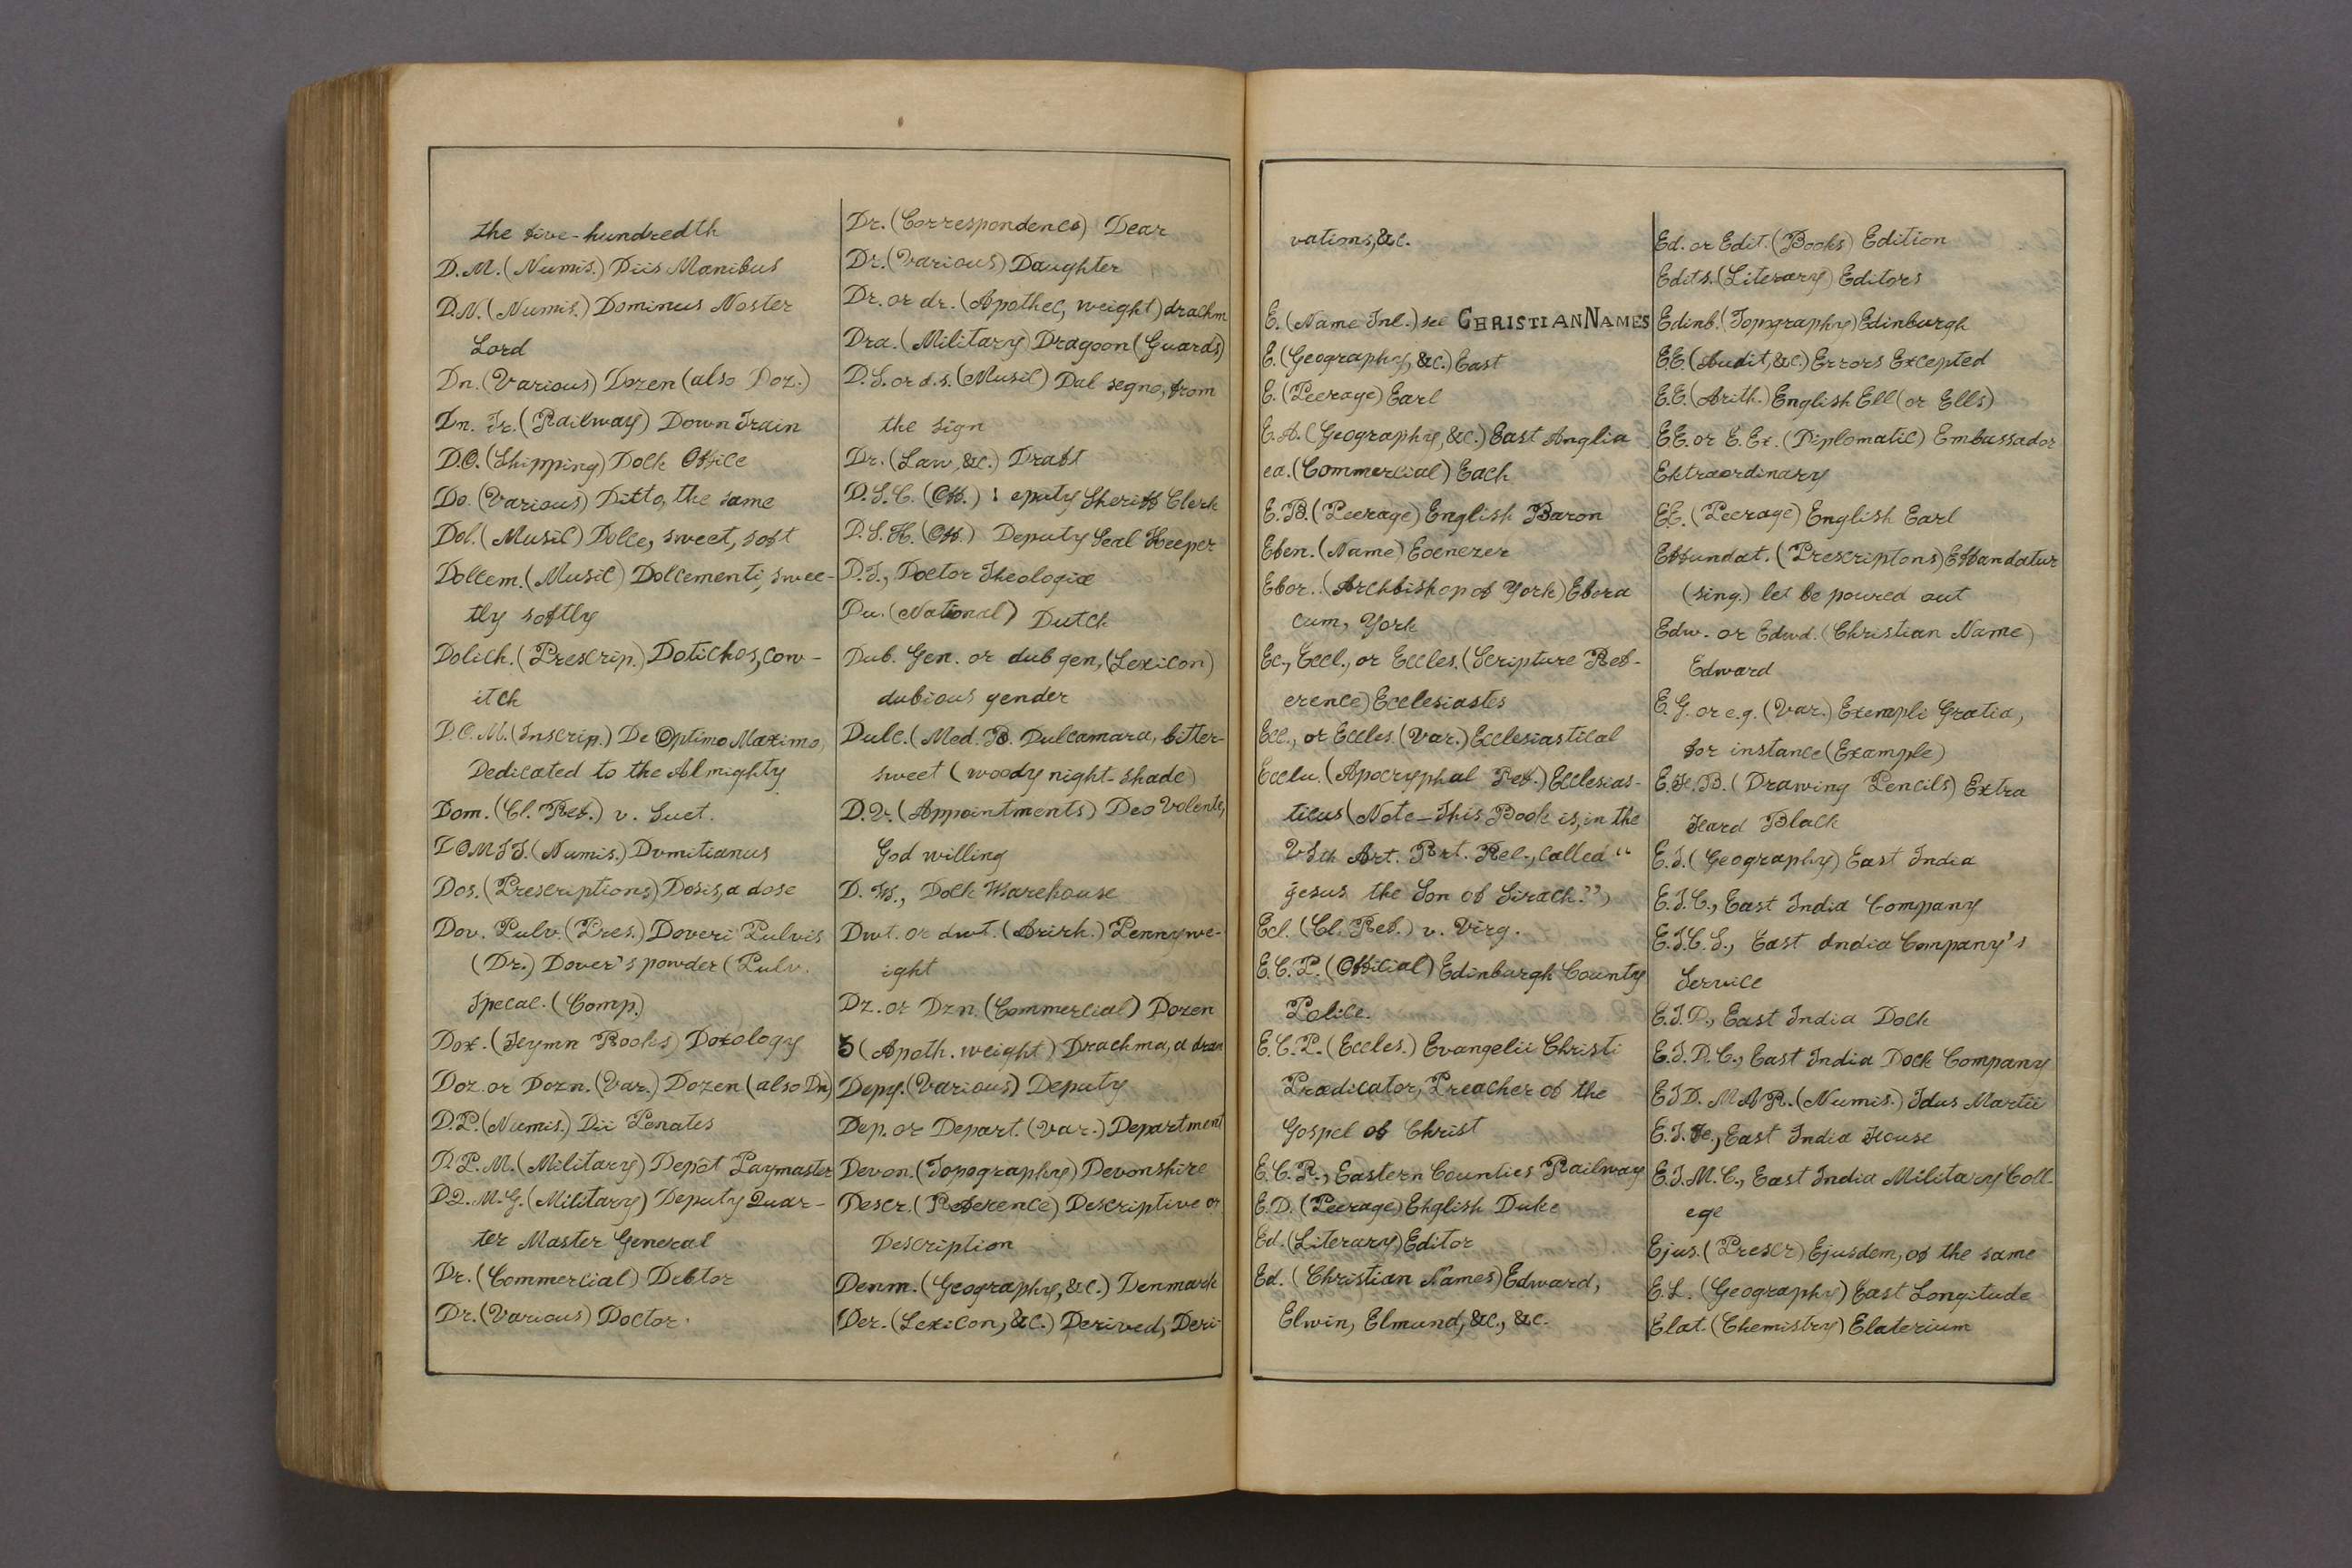 the five-hundredth
D.M. (Numis.) Diis Manibus
D.N. (Numis.) Dominus Noster
Lord
Dn. (Various) Dozen (also Doz.)
Dn. Tr. (Railway) Down Train
D.O. (Shipping) Dock Office
Do. (Various) Ditto, the same
Dol. (Music) Dolce, sweet, soft
Dolcem. (Music) Dolcementi, swee-
tly softly
Dolich. (Prescrip.) Dotichos, cow-
itch
D.O.M. (Inscrip.) De Optimo Maximo,
Dedicated to the Almighty
Dom. (Cl. Ref.) v. Suet.
DOMIT. (Numis.) Domitianus
Dos. (Prescriptions) Dosis, a dose
Dov. Pulv. (Pres.) Doveri Pulvis
(Dr.) Dover's powder (Pulv.
Ipecac. (Comp.)
Dox. (Hymn Books) Doxology
Doz. or Dozn. (Var.) Dozen (also Dn)
D.P. (Numis.) Dii Penates
D.P.M. (Military) Depôt Paymaster
D.Q.M.G. (Military) Deputy Quar-
ter Master General
Dr. (Commercial) Debtor
Dr. (Various) Doctor.
Dr. (Correspondence) Dear
Dr. (Various) Daughter
Dr. or dr. (Apothec, weight) drachm
Dra. (Military) Dragoon (Guards)
D.S. or d.s. (Music) Dal segno, from
the sign
Dr. (Law, &c.) Draft
D.S.C. (Off.) eputy Sheriff Clerk
D.S.K. (Off.) Deputy Seal Keeper
D.T., Doctor Theologiæ
Du. (National) Dutch
Dub. Gen. or dub gen, (Lexicon)
dubious gender
Dulc. (Med. B. Dulcamara, bitter-
sweet (woody night-shade)
D.V. (Appointments) Deo Volente,
God willing
D. W., Dock Warehouse
Dwt. or dwt. (Arirh.) Pennywe-
ight
Dz. or Dzn. (Commercial) Dozen
ʒ (Apoth. weight) Drachma, a dram
Depy. (Various) Deputy
Dep. or Depart. (Var.) Department
Devon. (Topography) Devonshire
Descr. (Reference) Descriptive or
Description
Denm. (Geography, &c.) Denmark
Der. (Lexicon, &c.) Derived, Deri-
vations, &c.
E. (Name Inl.) see CHRISTIAN NAMES
E. (Geography, &c.) East
E. (Peerage) Earl
E.A. (Geography, &c.) East Anglia
ea. (Commercial) Each
E.B. (Peerage) English Baron
Eben. (Name) Ebenezer
Ebor.. (Archbishop of York) Ebora
cum, York
Ec., Eccl., or Eccles. (Scripture Ref-
erence) Ecclesiastes
Ecc., or Eccles. (Var.) Ecclesiastical
Ecclu. (Apocryphal Ref.) Ecclesias-
ticus (Note—This Book is, in the
VIth Art. Prt. Rel., called "
Jesus the Son of Sirach.")
Ecl. (Cl. Ref.) v. Virg.
E.C.P. (Official) Edinburgh County
Police.
E.C.P. (Eccles.) Evangelii Christi
Prædicator, Preacher of the
Gospel of Christ
E.C.R., Eastern Counties Railway
E.D. (Peerage) English Duke
Ed. (Literary) Editor
Ed. (Christian Names) Edward,
Elwin, Elmund, &c., &c.
Ed. or Edit. (Books) Edition
Edits. (Literary) Editors
Edinb. (Topography) Edinburgh
E.E. (Audit, &c.) Errors Excepted
E.E. (Arith.) English Ell (or Ells)
EE. or E.Ex. (Diplomatic) Embassador
Extraordinary
E.E. (Peerage) English Earl
Effundat. (Prescriptons) Effandatur
(sing.) let be poured out
Edw. or Edwd. (Christian Name)
Edward
E.G. or e.g. (Var.) Exempli Gratia,
for instance (Example)
E.H.B. (Drawing Pencils) Extra
Hard Black
E.I. (Geography) East India
E.I.C., East India Company
E.I.C.S., East India Company's
Service
E.I.D., East India Dock
E.I.D.C., East India Dock Company
EID. MAR. (Numis.) Idus Martii
E.I.H., East India House
E.I.M.C., East India Military Coll-
ege
Ejus. (Prescr) Ejusdem, of the same
E.L. (Geography) East Longitude
Elat. (Chemistry) Elaterium